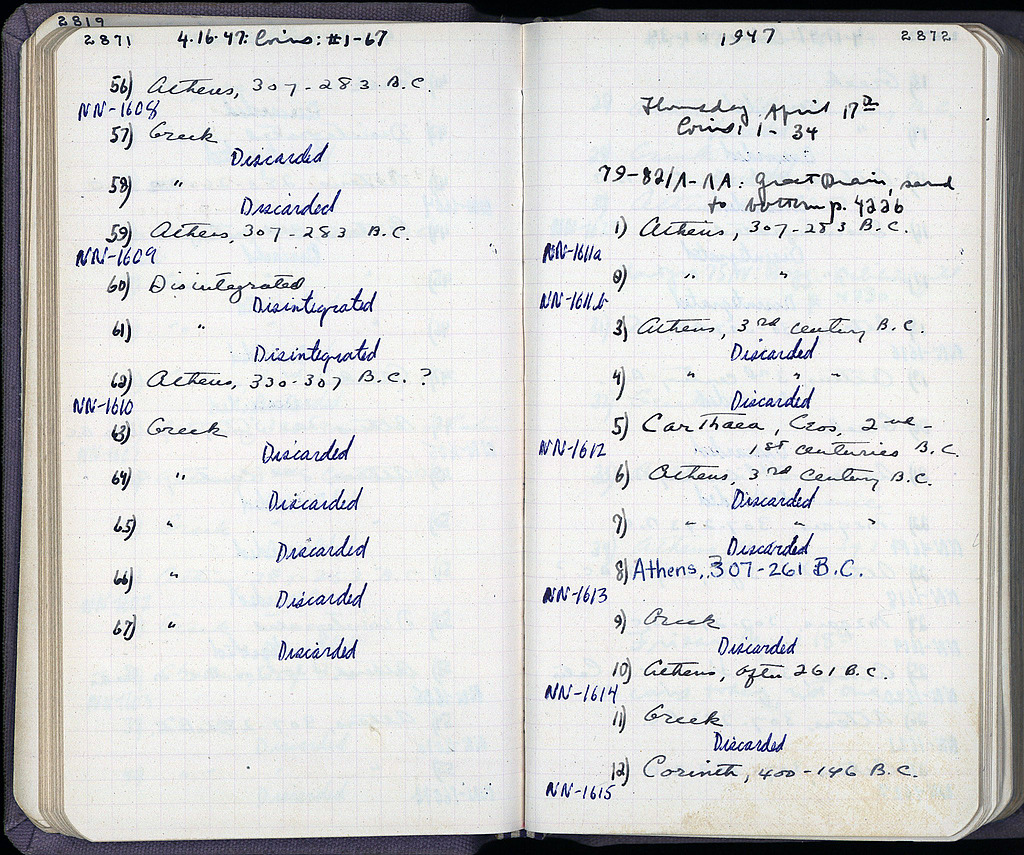 2819
2871 4.16.47: Coins: #1-67
56) Athens, 307-283 B.C.
NN-1608
57) Greek
Discarded
58) "
Discarded
59) Athens, 307-283 B.C.
NN-1609
60) Disintegrated
Disintegrated
61) "
Disintegrated
62) Athens, 330-307 B.C. ?
NN-1610
63) Greek
Discarded
64) "
Discarded
65) "
Discarded
66) "
Discarded
67) "
Discarded
1947 2872
Thursday April 17th
Coins: 1-34
79-82/Λ-ΛΑ: Great Drain, sand
to bottom p. 4226
1) Athens, 307-283 B.C.
NN-1611a
2) " "
NN-1611b
3) Athens, 3rd century B.C.
Discarded
4) " " "
Discarded
5) Carthaea, Ceos, 2nd-
NN-1612 1st centuries B.C.
6) Athens, 3rd Century B.C.
Discarded
7) " " ?
Discarded
8) Athens, 307-261 B.C.
NN-1613
9) Greek
Discarded
10) Athens, after 261 B.C.
NN-1614
11) Greek
Discarded
12) Corinth, 400-146 B.C.
NN-1615